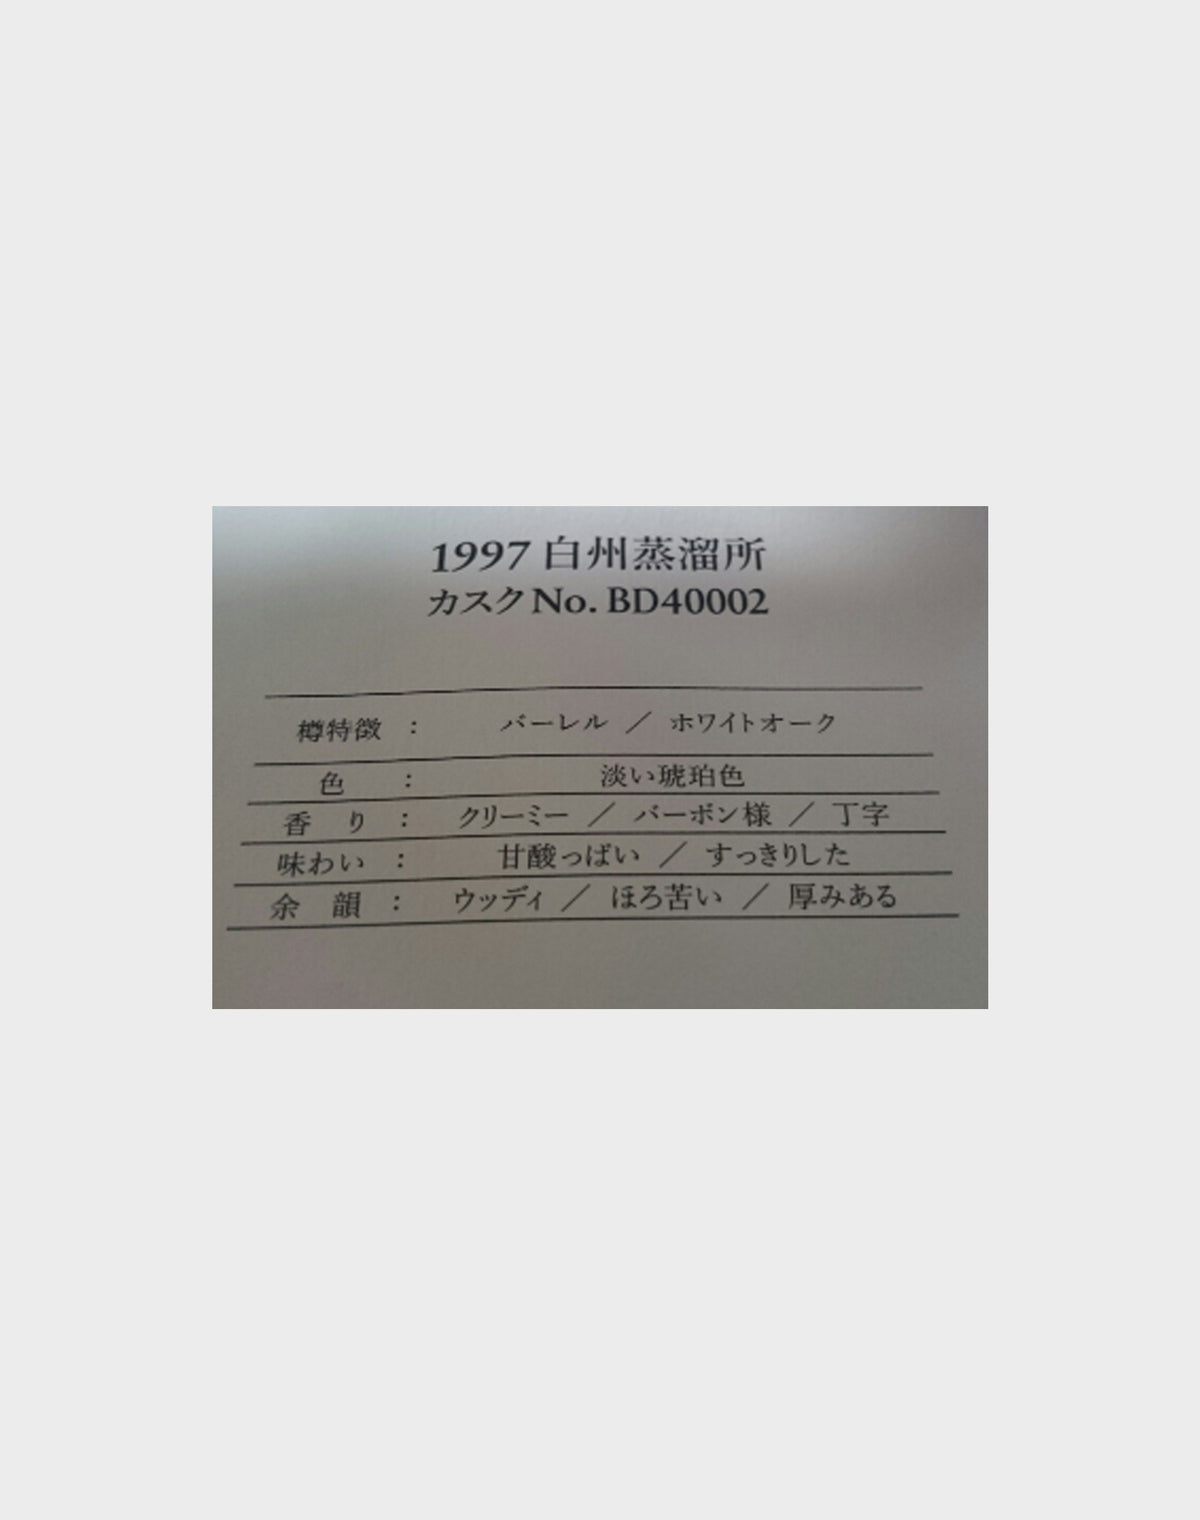 1997 白州蒸溜所
カスク No. BD40002
樽特徴 : バーレル ／ ホワイトオーク
色 : 淡い琥珀色
香り : クリーミー ／ バーボン様 ／ 丁字
味わい : 甘酸っぱい ／ すっきりした
余韻 : ウッディ ／ ほろ苦い ／ 厚みある